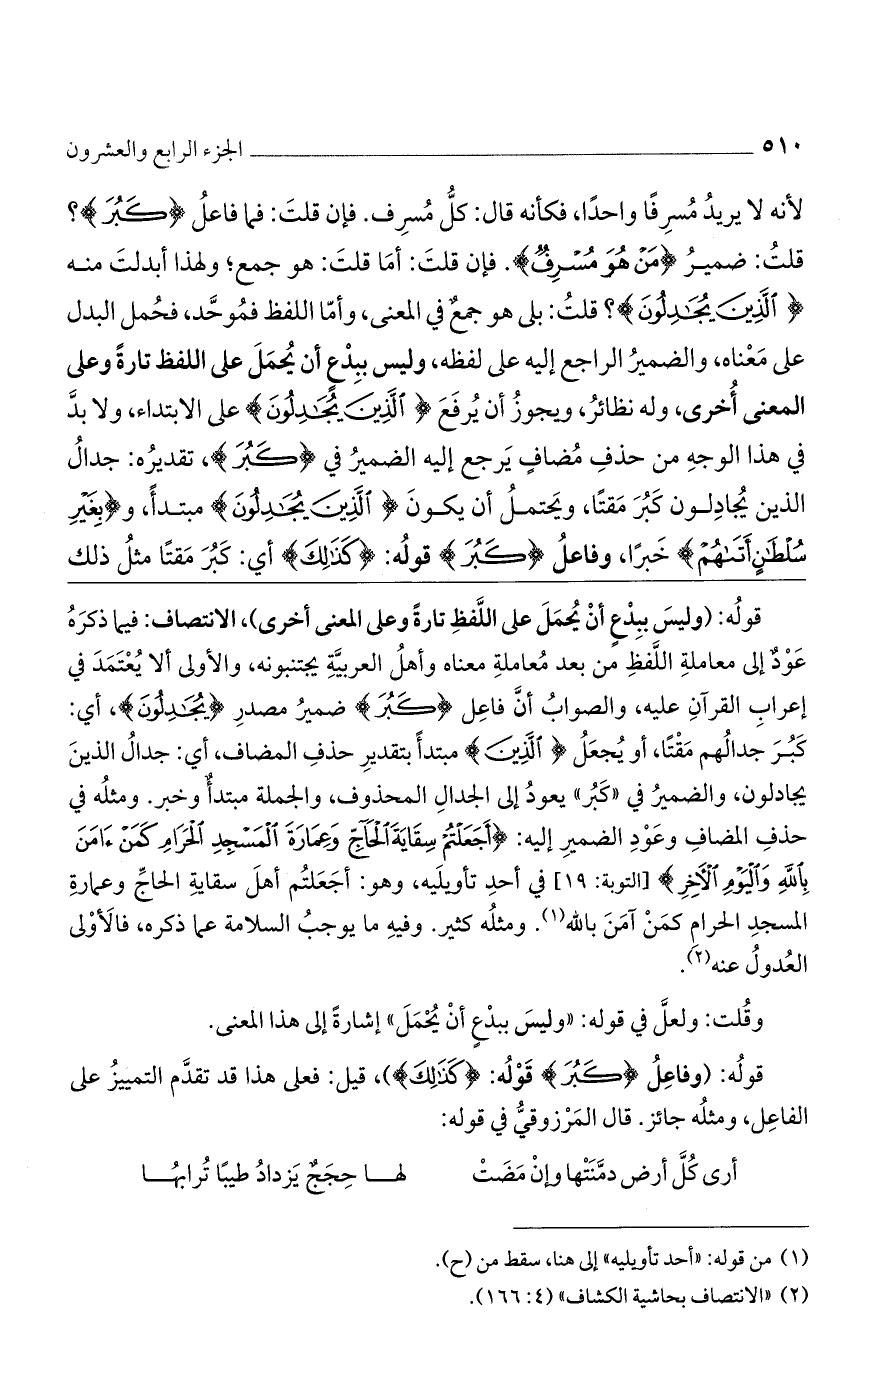 ٥١٠ الجزء الرابع والعشرون
لأنه لا يريدُ مُسرِفًا واحدًا، فكأنه قال: كلُّ مُسرِف. فإن قلتَ: فما فاعلُ ﴿كَبُرَ﴾؟
قلتُ: ضميرُ ﴿مَنْ هُوَ مُسْرِفٌ﴾. فإن قلتَ: أمَا قلتَ: هو جمع؛ ولهذا أبدلتَ منه
﴿ٱلَّذِينَ يُجَٰدِلُونَ﴾؟ قلتُ: بلى هو جمعٌ في المعنى، وأمّا اللفظ فمُوحَّد، فحُمل البدل
على مَعْناه، والضميرُ الراجع إليه على لفظه، وليس ببِدْعٍ أن يُحمَلَ على اللفظ تارةً وعلى
المعنى أُخرى، وله نظائرُ، ويجوزُ أن يُرفَعَ ﴿ٱلَّذِينَ يُجَٰدِلُونَ﴾ على الابتداء، ولا بدَّ
في هذا الوجهِ من حذفِ مُضافٍ يَرجع إليه الضميرُ في ﴿كَبُرَ﴾، تقديرُه: جدالُ
الذين يُجادِلون كَبُرَ مَقتًا، ويَحتملُ أن يكونَ ﴿ٱلَّذِينَ يُجَٰدِلُونَ﴾ مبتدأً، و﴿بِغَيْرِ
سُلْطَٰنٍ أَتَىٰهُمْ﴾ خَبرًا، وفاعلُ ﴿كَبُرَ﴾ قولُه: ﴿كَذَٰلِكَ﴾ أي: كَبُرَ مَقتًا مثلُ ذلك
قولُه: (وليسَ ببِدْعٍ أنْ يُحْمَلَ على اللَّفظِ تارةً وعلى المعنى أخرى)، الانتصاف: فيما ذكرَهُ
عَوْدٌ إلى معاملةِ اللَّفظِ من بعد مُعاملةِ معناه وأهلُ العربيَّةِ يجتنبونه، والأولى ألا يُعْتَمَدَ في
إعرابِ القرآنِ عليه، والصوابُ أنَّ فاعِل ﴿كَبُرَ﴾ ضميرُ مصدرِ ﴿يُجَٰدِلُونَ﴾، أي:
كَبُرَ جدالُهم مَقْتًا، أو يُجعَلُ ﴿ٱلَّذِينَ﴾ مبتدأً بتقديرِ حذفِ المضاف، أي: جدالُ الذينَ
يجادلون، والضميرُ في «كَبُرَ» يعودُ إلى الجدالِ المحذوف، والجملة مبتدأٌ وخبر. ومثلُه في
حذفِ المضاف وعَوْدِ الضميرِ إليه: ﴿أَجَعَلْتُمْ سِقَايَةَ ٱلْحَآجِّ وَعِمَارَةَ ٱلْمَسْجِدِ ٱلْحَرَامِ كَمَنْ ءَامَنَ
بِٱللَّهِ وَٱلْيَوْمِ ٱلْأَخِرِ﴾ [التوبة: ١٩] في أحدِ تأويلَيه، وهو: أجَعَلتُم أهلَ سقايةِ الحاجِّ وعمارةِ
المسجدِ الحرامِ كمَنْ آمَنَ بالله(١). ومثلُه كثير. وفيهِ ما يوجبُ السلامة عما ذكره، فالأَوْلى
العُدولُ عنه(٢).
وقُلت: ولعلَّ في قوله: «وليسَ ببدْعٍ أنْ يُحْمَلَ» إشارةً إلى هذا المعنى.
قولُه: (وفاعِلُ ﴿كَبُرَ﴾ قَوْلُه: ﴿كَذَٰلِكَ﴾)، قيل: فعلى هذا قد تقدَّم التمييزُ على
الفاعِل، ومثلُه جائز. قال المَرْزوقيُّ في قوله:
أرى كُلَّ أرضٍ دمَّنَتْها وإنْ مَضَتْ لها حِجَجٌ يَزدادُ طيبًا تُرابهُا
(١) من قوله: «أحد تأويليه» إلى هنا، سقط من (ح).
(٢) «الانتصاف بحاشية الكشاف» (٤: ١٦٦).